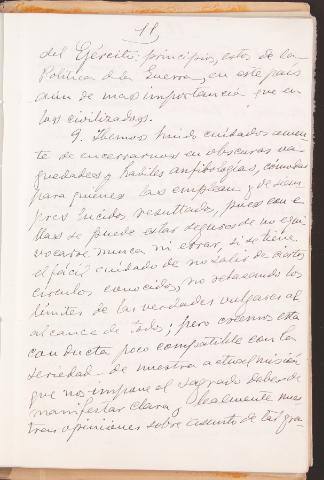 11
del Ejército: principios, estos de la
Política de la Guerra, en este país
aún de mas importancia que en
los civilizados.
9. Hemos huido cuidadosamen
te de encerrarnos en obscuras va
guedades y hábiles anfibologías, cómodas
para quienes las emplean y de siem
pres lucidos resultados, pues con e
llas se puede estar seguros de no equi
vocarse nunca ni errar, si se tiene
el fácil cuidado de no salir de ciertos
círculos conocidos, no rebasando los
límites de las verdades vulgares al
alcance de todos; pero creemos esta
conducta poco compatible con la
seriedad de nuestra actual misión
que nos impone el sagrado deber de
manifestar clara y lealmente nues
tras opiniones sobre asunto de tal gra-